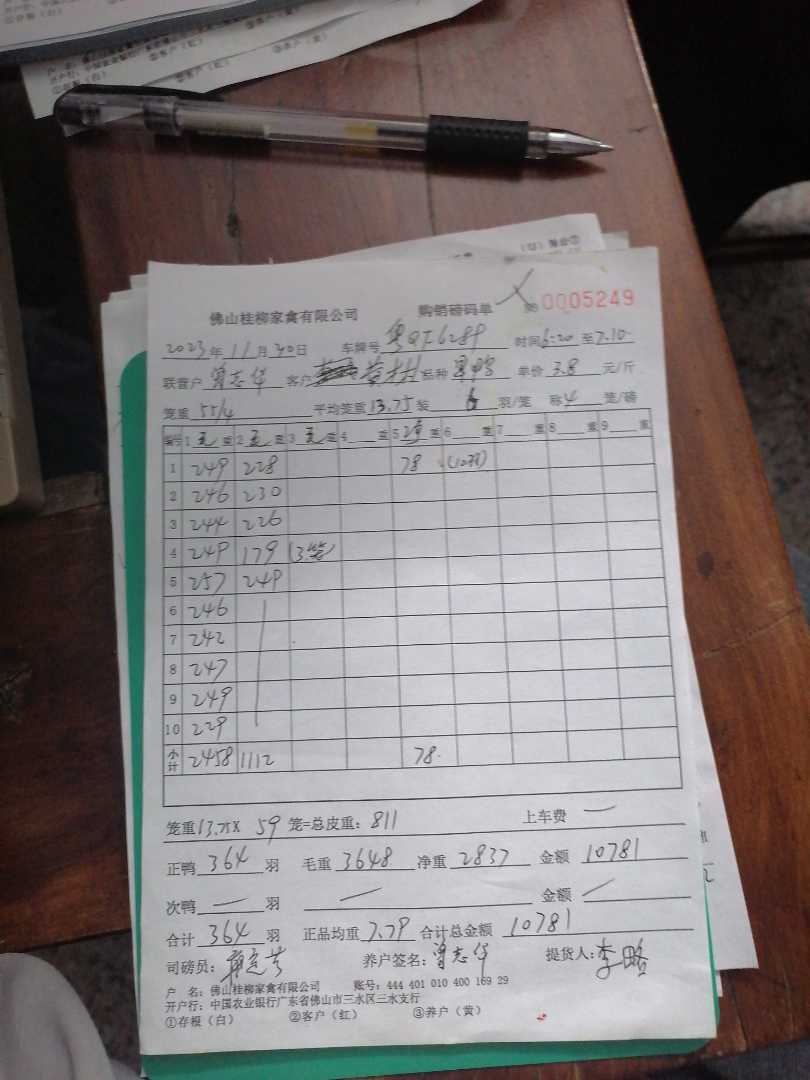 佛山桂柳家禽有限公司 购销磅码单 № 0005249
2023年 11月 30日 车牌号 粤QF6289 时间6:20 至7.10
联营户 曾志华 客户 品种 单价 3.8 元/斤
笼重 55/4 平均笼重 13.75 装 6 羽/笼 称 4 笼/磅
编号 1 毛 重 2 毛 重 3 毛 重 4 重 5 重 6 重 7 重 8 重 9 重
1 249 228 78
2 246 230
3 244 226
4 249 179 (3笼)
5 257 249
6 246
7 242
8 247
9 249
10 229
小计 2458 1112 78.
笼重 13.75 X 59 笼=总皮重: 811 上车费 —
正鸭 364 羽 毛重 3648 净重 2837 金额 10781
次鸭 — 羽 金额
合计 364 羽 正品均重 7.79 合计总金额 10781
司磅员: 养户签名: 曾志华 提货人: 李略
户 名: 佛山桂柳家禽有限公司 账号: 444 401 010 400 169 29
开户行: 中国农业银行广东省佛山市三水区三水支行
①存根(白) ②客户(红) ③养户(黄)